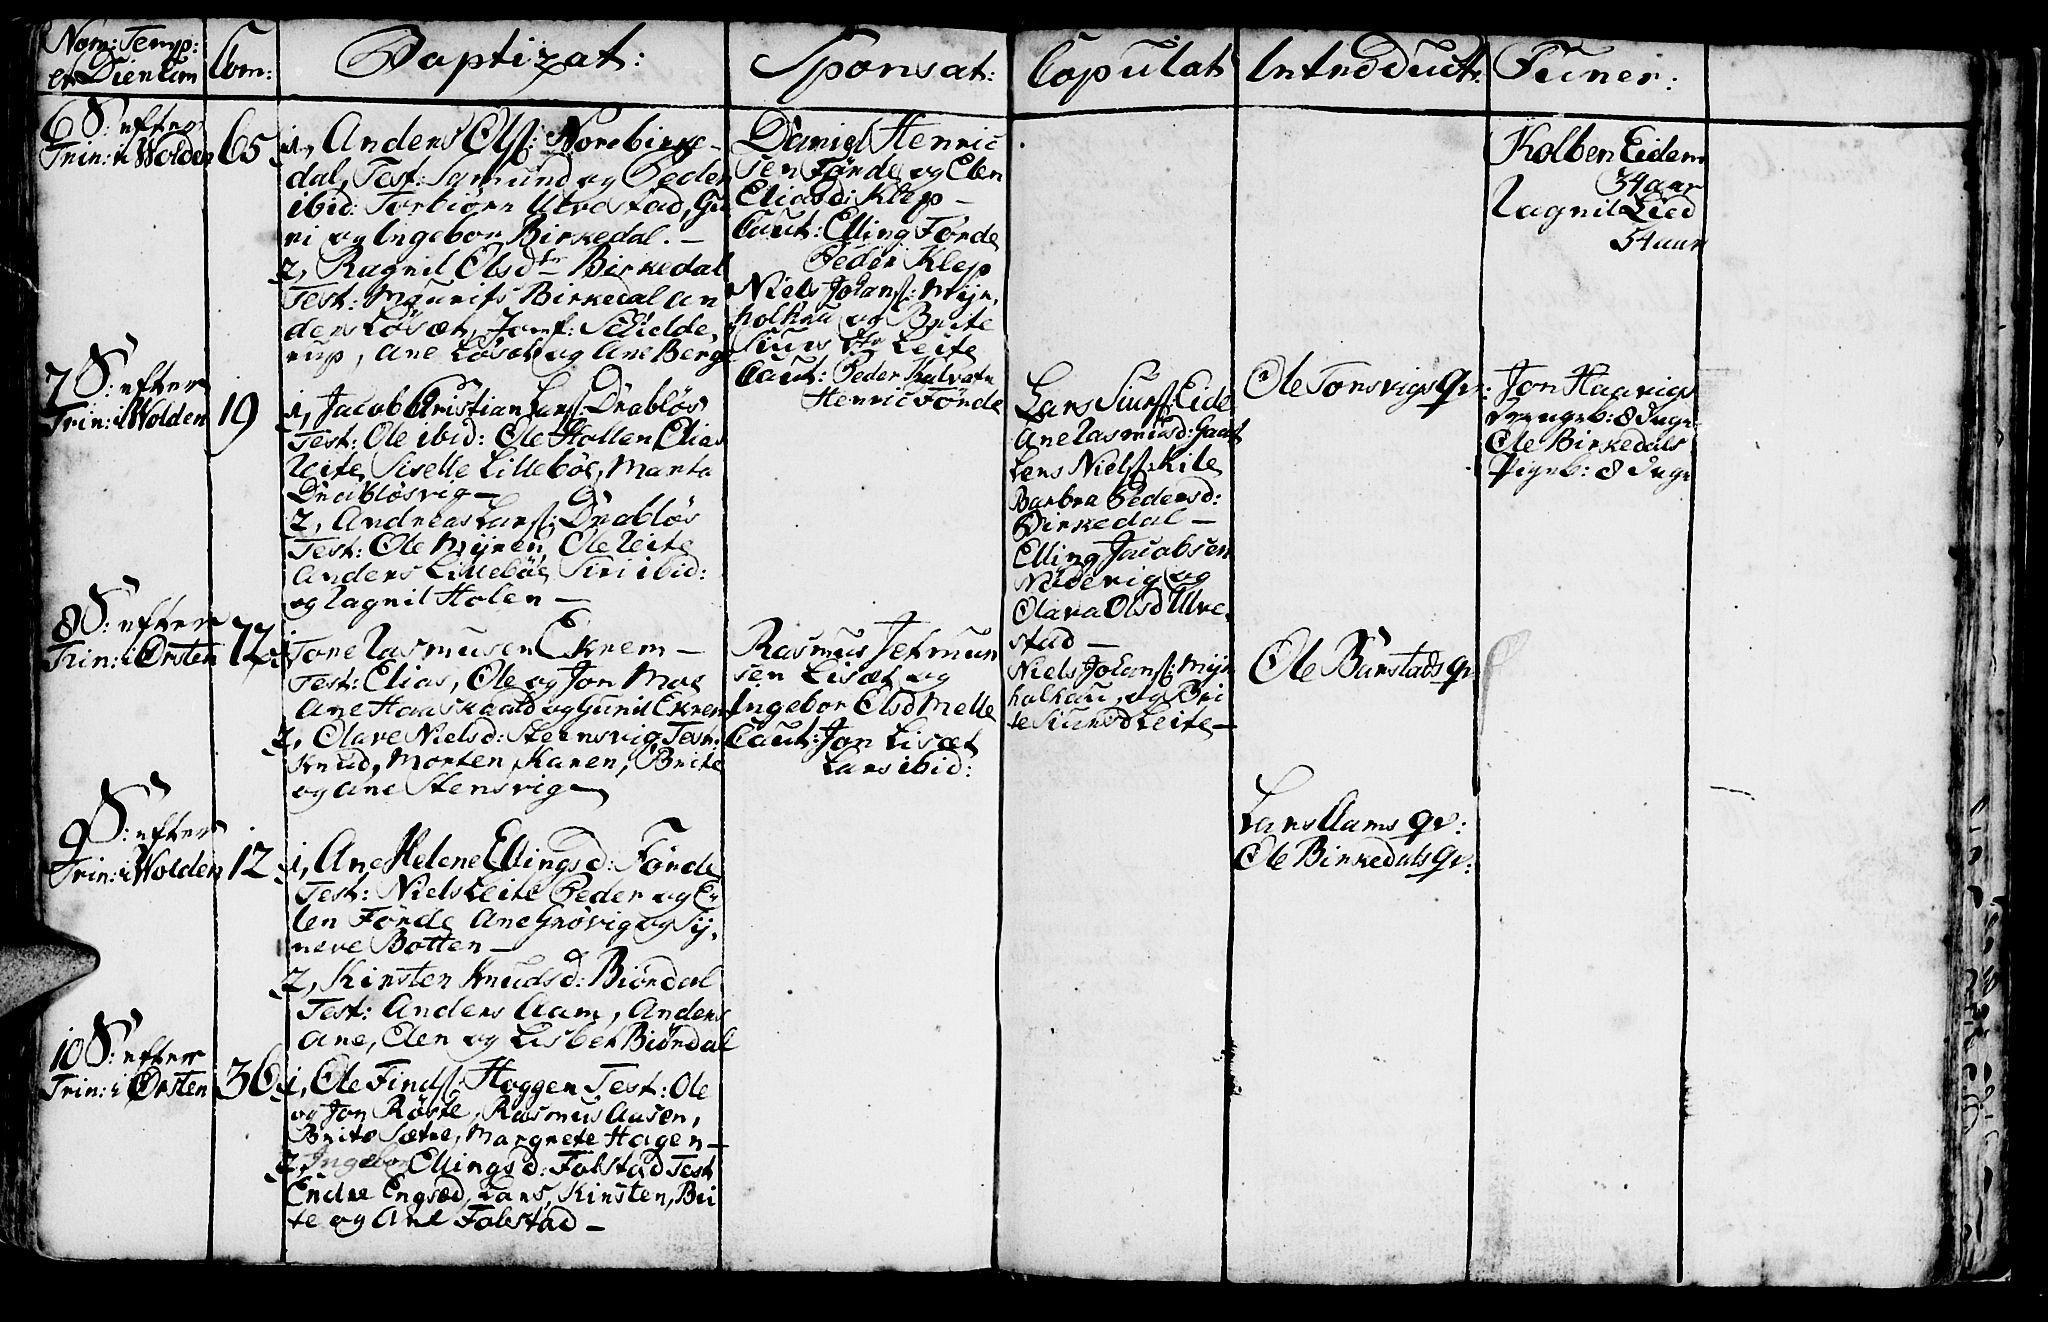 Nom: Temp:
et Dierum
Com:
Baptizat:
Sponsat:
Copulat
Introduct:
Funer:
6 S: efter
Trin: i Wolden
65
1, Anders Olss: Norebirke-
dal, Test: Samund og Peder
ibid: Torbiørn Ulvestad, Gu
ri og Ingebor Birkedal. –
2, Ragnil Olsdtr Birkedal
Test: Maurits Birkedal An
ders Løsæt, Jomf: Schielde,
rup, Ane Løsæt og Ane Berge
Daniel Henric
sen Førde og Elen
Eliasd: Klep –
Caut: Elling Førde
Peder Klep
Niels Johans: Myr,
holhau og Brite
Siurs dtr Leite
Caut: Peder Kalvatn
Henric Førde
Kolben Eidem
34 aar
Ragnil Lied
54 aar
7 S: efter
Trin: i Wolden
19
1, Jacob Christian Larss: Drabløs
Test: Ole ibid: Ole Hollen Elias
Leite, Siselle Lillebøe, Marta
Drabløsvig –
2, Andreas Larss: Drabløs
Test: Ole Myren, Ole Leite
Anders Lillebøe Siri ibid:
og Ragnil Holen –
Lars Siurss: Eide
Ane Rasmusd:
Lars Nielss: Kile
Barbra Pedersd:
Birkedal –
Elling Jacobsen
Nüdevig og
Olava Olsd Ulve-
stad –
Niels Johanss: Myr
holhau, og Bri
te Siursd Leite –
Ole Torsvigs qv:
Jon Haavigs
Drengeb: 8 Dage
Ole Birkedals
Pigeb: 8 Dage
8 S: efter
Trin: i Ørsten
72
1, Tore Rasmusen Ekrem –
Test: Elias, Ole og Jon Moe
Ane Haaskaald og Gunil Ekrem
2, Olave Nielsd: Steinsvig Test:
Knud, Morten, Karen, Brite
og Ane Stensvig –
Rasmus Jetmun
sen Lisæt og
Ingebor Elsd Melle
Caut: Jon Lisæt
Lars ibid:
Ole Barstads qv
9 S: efter
Trin: i Wolden
12
1, Ane Helene Ellingsd: Førde
Test: Niels Leite Peder og E,
len Førde Ane Grøvig og Sy,
neve Botten –
2, Kirsten Knudsd: Biørdal
Test: Anders Aam, Anders
Ane, Elen og Lisbet Biørdal
Lars Aams qv:
Ole Birkedals qv:
10 S: efter
Trin: i Ørsten
36
1, Ole Findss: Haggen Test: Ole
og Jon Røste, Rasmus Aasen,
Brite Sætre, Margrete Hagen –
2, Ingebor Ellingsd: Folstad Test
Endre Engsæd, Lars, Kirsten, Bri
te og Ane Folestad –